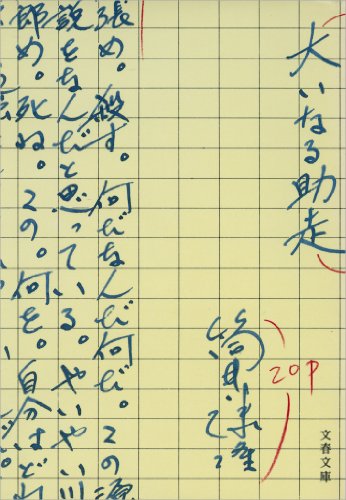 大いなる助走
筒井康隆
20P
文春文庫
張め。殺す。何だなんだ何だ。この源
説をなんだと思っている。やいやい川
郎め。死ね。この。何を。自分はど